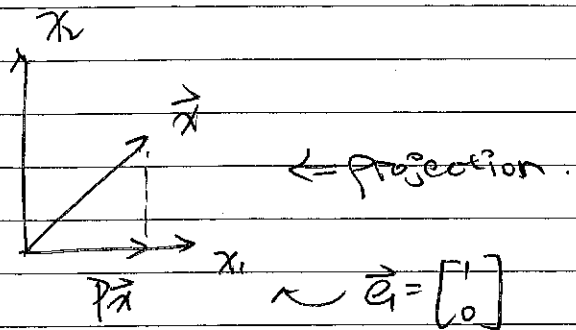 x₂
x⃗
← projection.
x₁
Px⃗
e⃗₁ = [1 0]